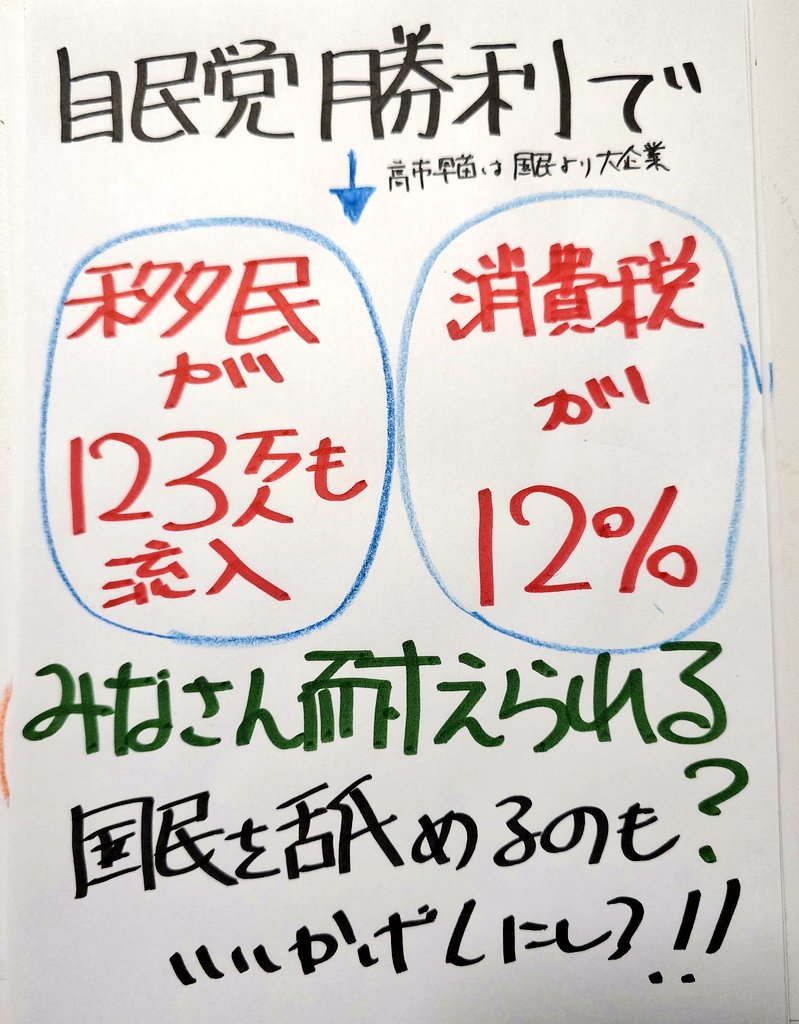 自民党勝利で
高市早苗は国民より大企業
移民
が
123万人も
流入
消費税
が
12%
みなさん耐えられる?
国民を舐めるのも
いいかげんにしろ!!